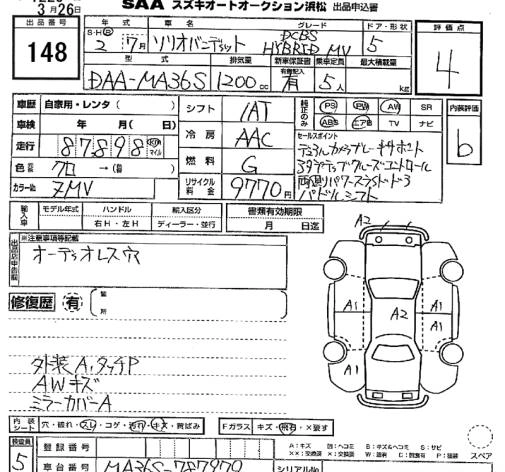 SAA スズキオートオークション浜松 出品申込書
3月26日
出品番号
148
年式
S・H・R 2 7月
車名
ソリオバンディット
グレード
DCBS
HYBRID MV
ドア・形状
5
評価点
4
型式
DAA-MA36S
排気量
1200 cc
新車保証書
有
乗車定員
5人
最大積載量
kg
車歴 自家用・レンタ( )
シフト
1AT
純正のみ
PS PW AW SR
ABS エアB TV ナビ
内装評価
b
車検 年 月( 日)
冷房
AAC
セールスポイント
デュアルカメラブレーキサポート
アダプティブクルーズコントロール
両側パワースライドドア
パドルシフト
走行 87898 km マイル
燃料
G
色 クロ →( )
カラーNo ZMV
リサイクル料金
9770円
輸入車
モデル年式
ハンドル
右H・左H
輸入区分
ディーラー・並行
書類有効期限
月 日迄
出品店申告欄
※注意事項等記載
オーディオレス穴
修復歴 有
箇所
A2
A1
A1
A2
A1
A1
A1
外装A,タッチP
AWキズ
ミラーカバーA
内装シート 穴・破れ・スレ・コゲ・汚れ・キズ・黄ばみ
Fガラス キズ・飛石・×要す
検査員
5
登録番号
車台番号 MA36S-787970
シリアルNo
A:キズ
B:キズ&ヘコミ S:サビ
××:交換済 ×:交換要
スペア